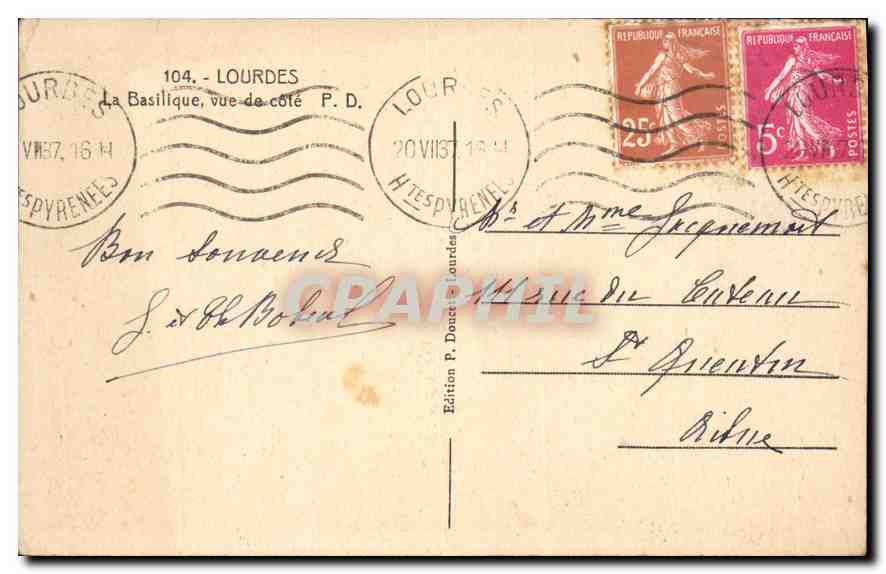 104. - LOURDES
La Basilique, vue de côté P. D.
LOURDES
VII37. 16 H
HTESPYRENEES
LOURDES
20 VII37. 16 H
HTESPYRENEES
REPUBLIQUE FRANÇAISE
25c
POSTES
REPUBLIQUE FRANÇAISE
5c
POSTES
LOURDES
HTESPYRENEES
Bon souvenir
Edition P. Doucet - Lourdes
CPAPHIL
Mr et Mme Jacquemart
rue du
St Quentin
Aisne